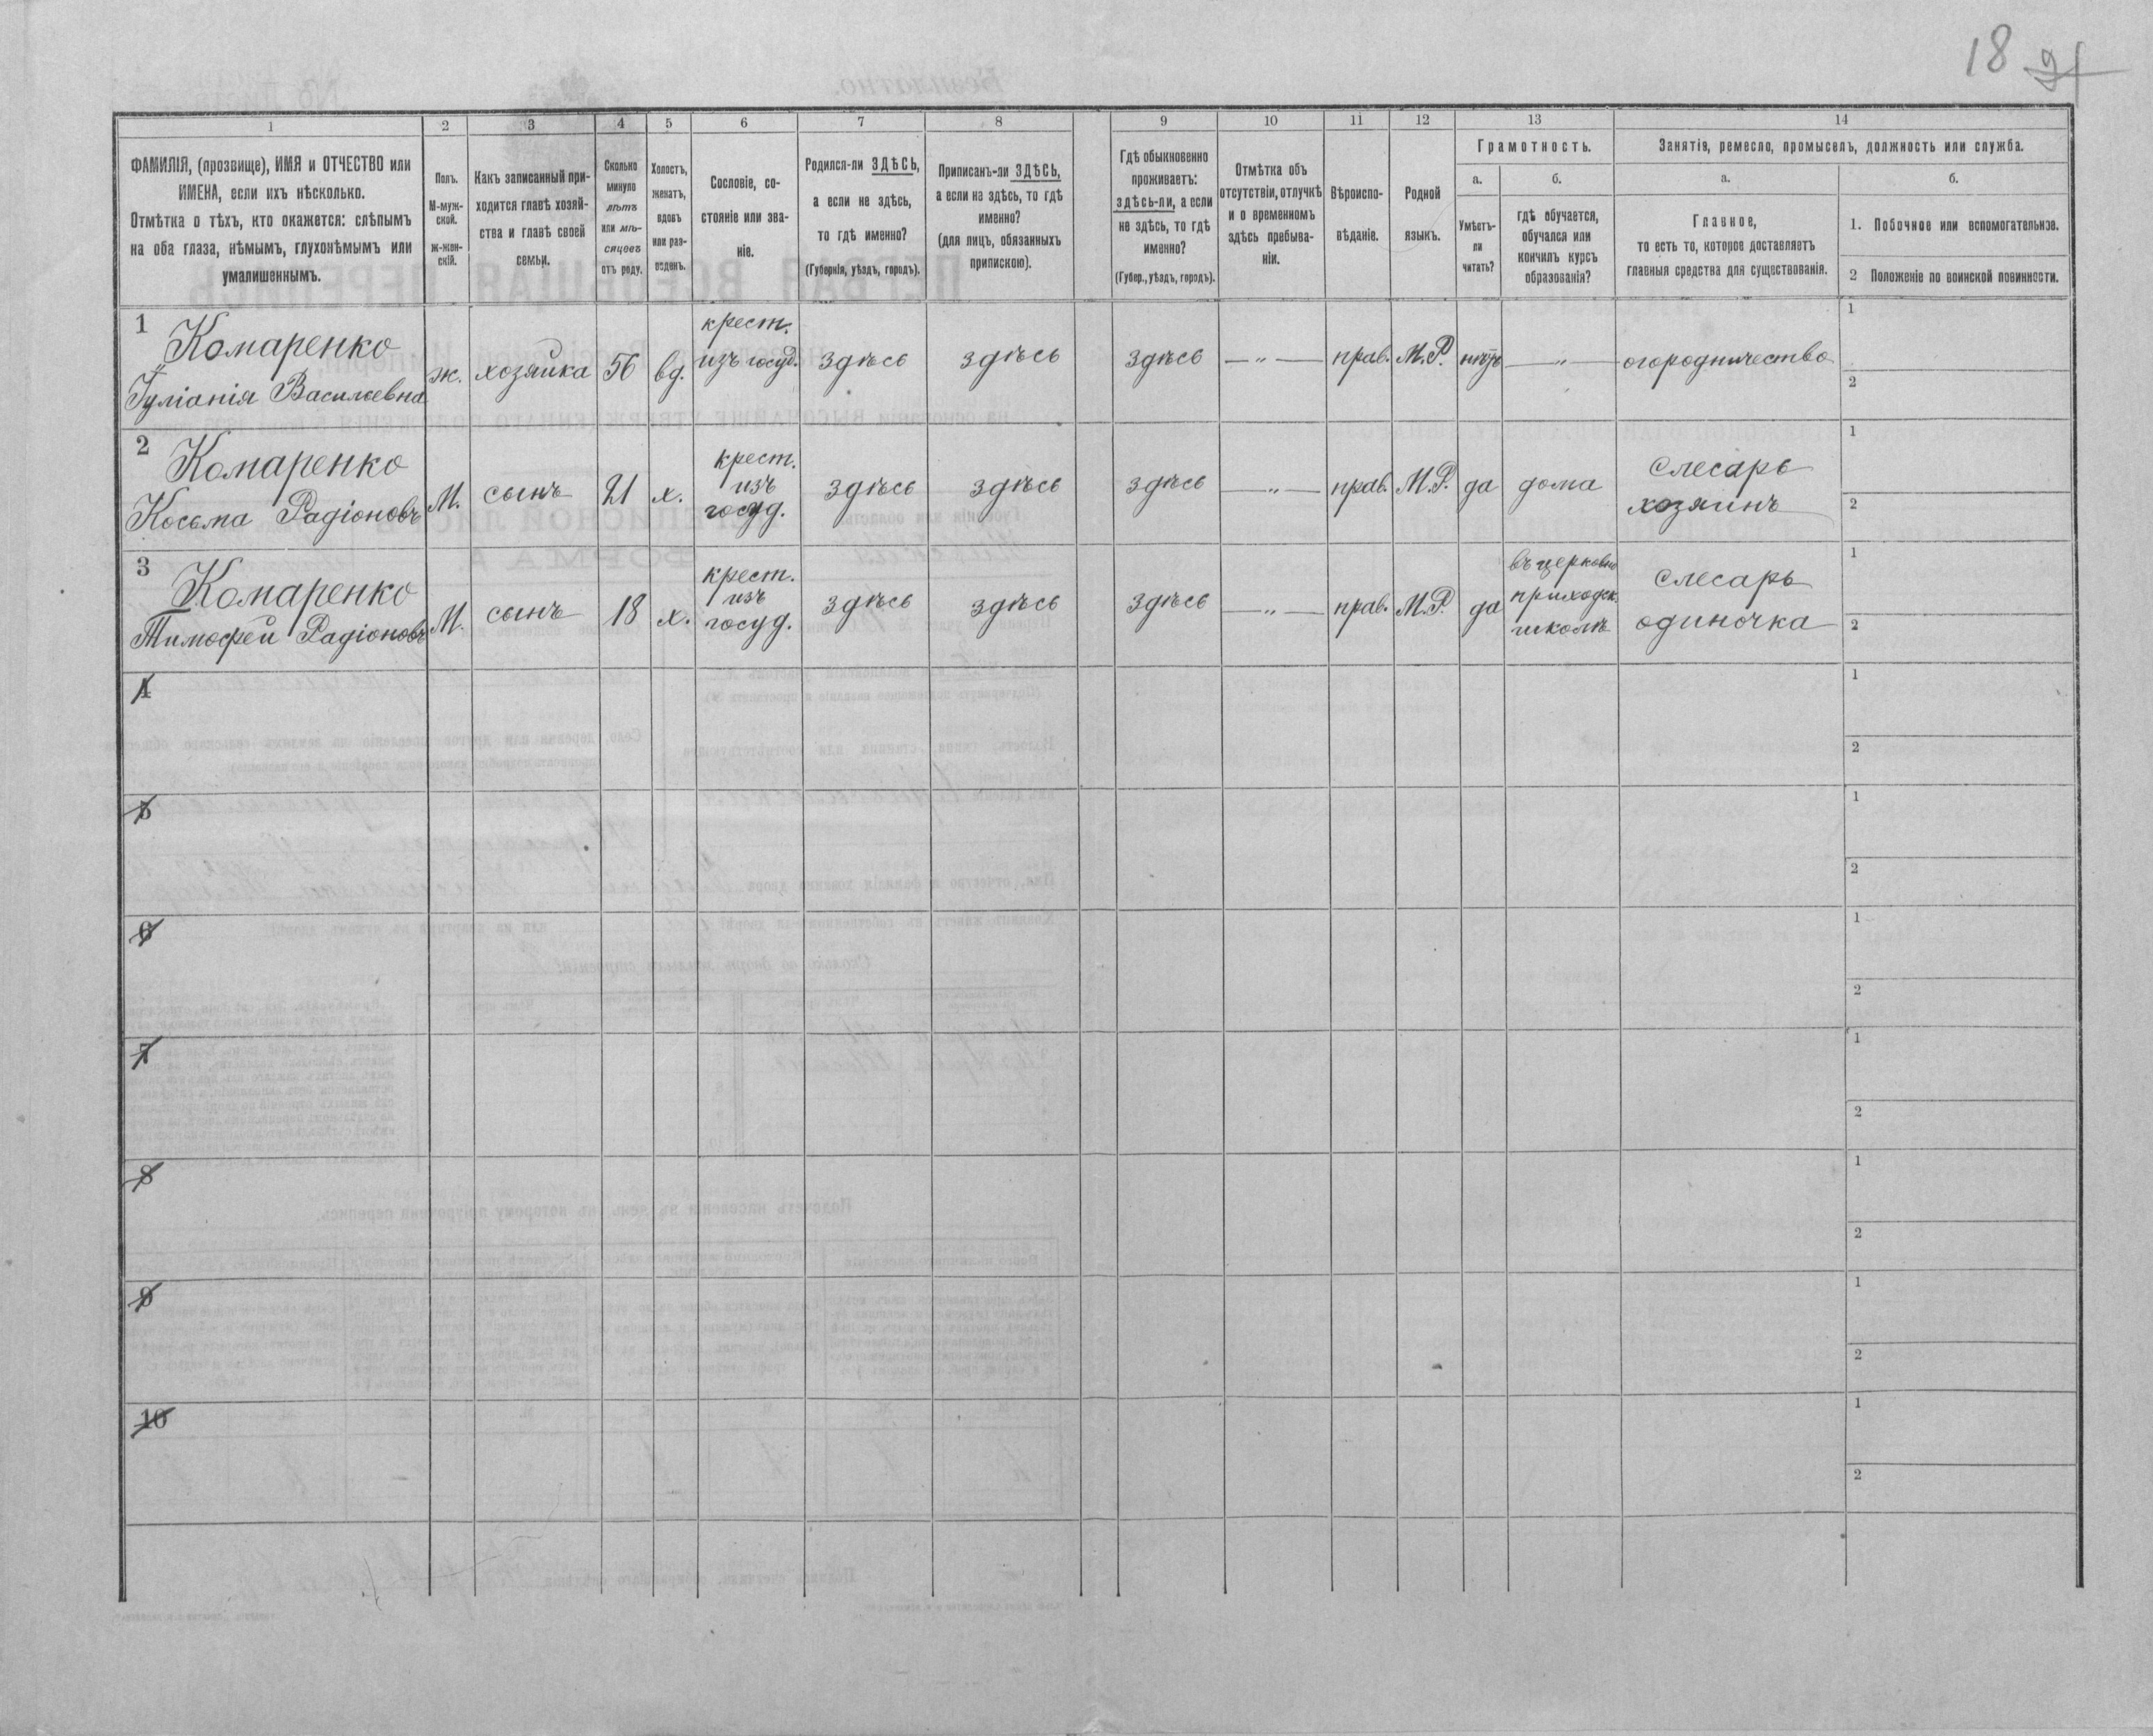 18 21
1 2 3 4 5 6 7 8 9 10 11 12 13 14
ФАМИЛІЯ, (прозвище), ИМЯ и ОТЧЕСТВО или
ИМЕНА, если ихъ нѣсколько.
Отмѣтка о тѣхъ, кто окажется: слѣпымъ
на оба глаза, нѣмымъ, глухонѣмымъ или
умалишеннымъ.
Полъ.
М-муж-
ской.
ж-жен-
скій.
Какъ записанный при-
ходится главѣ хозяй-
ства и главѣ своей
семьи.
Сколько
минуло
лѣтъ
или мѣ-
сяцевъ
отъ роду.
Холостъ,
женатъ,
вдовъ
или раз-
веденъ.
Сословіе, со-
стояніе или зва-
ніе.
Родился-ли ЗДѢСЬ,
а если не здѣсь,
то гдѣ именно?
(Губернія, уѣздъ, городъ).
Приписанъ-ли ЗДѢСЬ,
а если не здѣсь, то гдѣ
именно?
(для лицъ, обязанныхъ
припискою).
Гдѣ обыкновенно
проживаетъ:
здѣсь-ли, а если
не здѣсь, то гдѣ
именно?
(Губер., уѣздъ, городъ).
Отмѣтка объ
отсутствіи, отлучкѣ
и о временномъ
здѣсь пребыва-
ніи.
Вѣроиспо-
вѣданіе.
Родной
языкъ.
Грамотность.
а.
Умѣетъ-
ли
читать?
б.
гдѣ обучается,
обучался или
кончилъ курсъ
образованія?
Занятія, ремесло, промыселъ, должность или служба.
а.
Главное,
то есть то, которое доставляетъ
главныя средства для существованія.
б.
1. Побочное или вспомогательное.
2 Положеніе по воинской повинности.
1 Комаренко
Іуліанія Васильевна
ж. хозяйка 56 вд.
крест.
изъ госуд.
здѣсь здѣсь здѣсь — „ — прав. М.Р. нѣтъ — „ — огородничество
1
2
2 Комаренко
Косьма Радіоновъ
М. сынъ 21 х.
крест.
изъ
госуд.
здѣсь здѣсь здѣсь — „ — прав. М.Р. да дома
слесарь
хозяинъ
1
2
3 Комаренко
Тимофей Радіоновъ
М. сынъ 18 х.
крест.
изъ
госуд.
здѣсь здѣсь здѣсь — „ — прав. М.Р. да
въ церковно
приходск.
школѣ
слесарь
одиночка
1
2
4
1
2
5
1
2
6
1
2
7
1
2
8
1
2
9
1
2
10
1
2